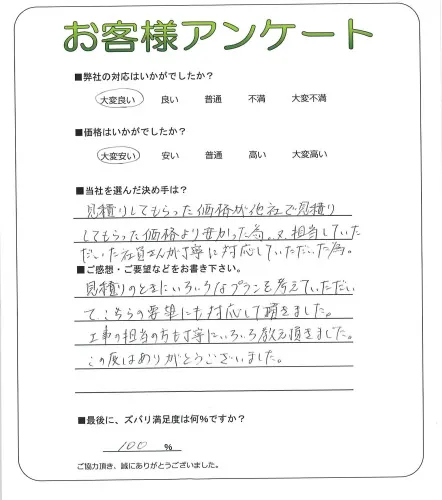 お客様アンケート
■弊社の対応はいかがでしたか?
大変良い 良い 普通 不満 大変不満
■価格はいかがでしたか?
大変安い 安い 普通 高い 大変高い
■当社を選んだ決め手は?
見積りしてもらった価格が他社で見積り
してもらった価格より安かった為。又、担当していた
だいた社員さんが丁寧に対応していただいた為。
■ご感想・ご要望などをお書き下さい。
見積りのときにいろいろなプランを考えていただい
て、こちらの要望にも対応して頂きました。
工事の担当の方も丁寧にいろいろ教え頂きました。
この度はありがとうございました。
■最後に、ズバリ満足度は何%ですか?
100 %
ご協力頂き、誠にありがとうございました。